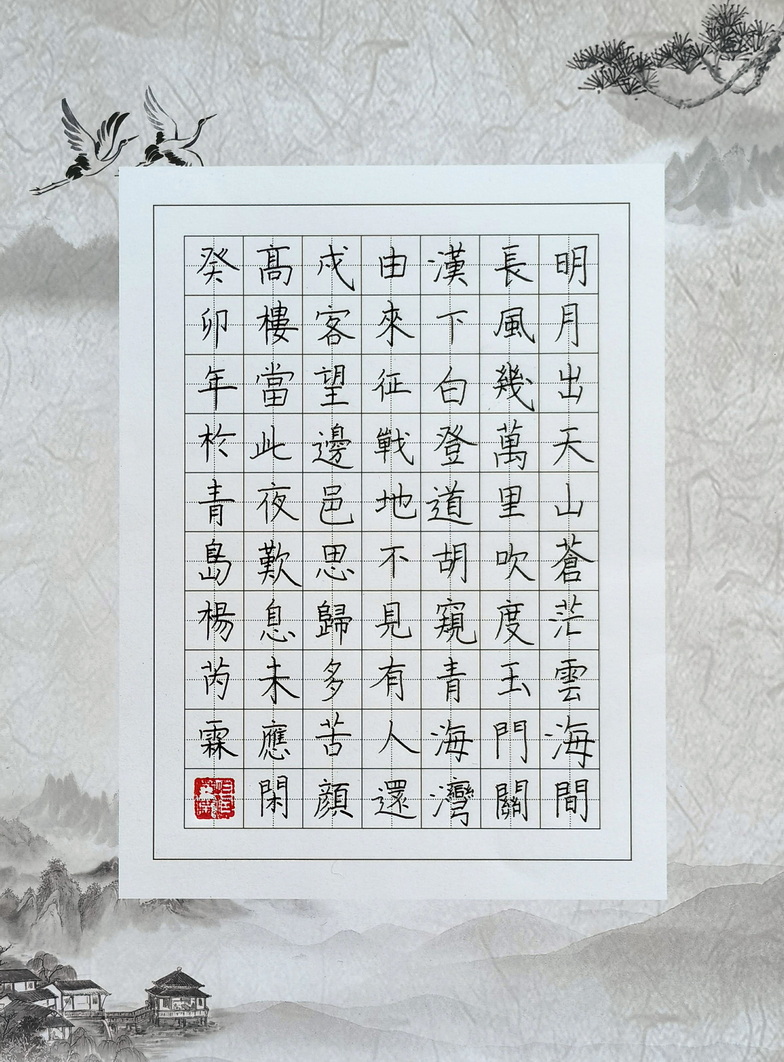 明月出天山蒼茫雲海間
長風幾萬里吹度玉門關
漢下白登道胡窺青海灣
由來征戰地不見有人還
戍客望邊邑思歸多苦顏
高樓當此夜歎息未應閑
癸卯年於青島楊芮霖